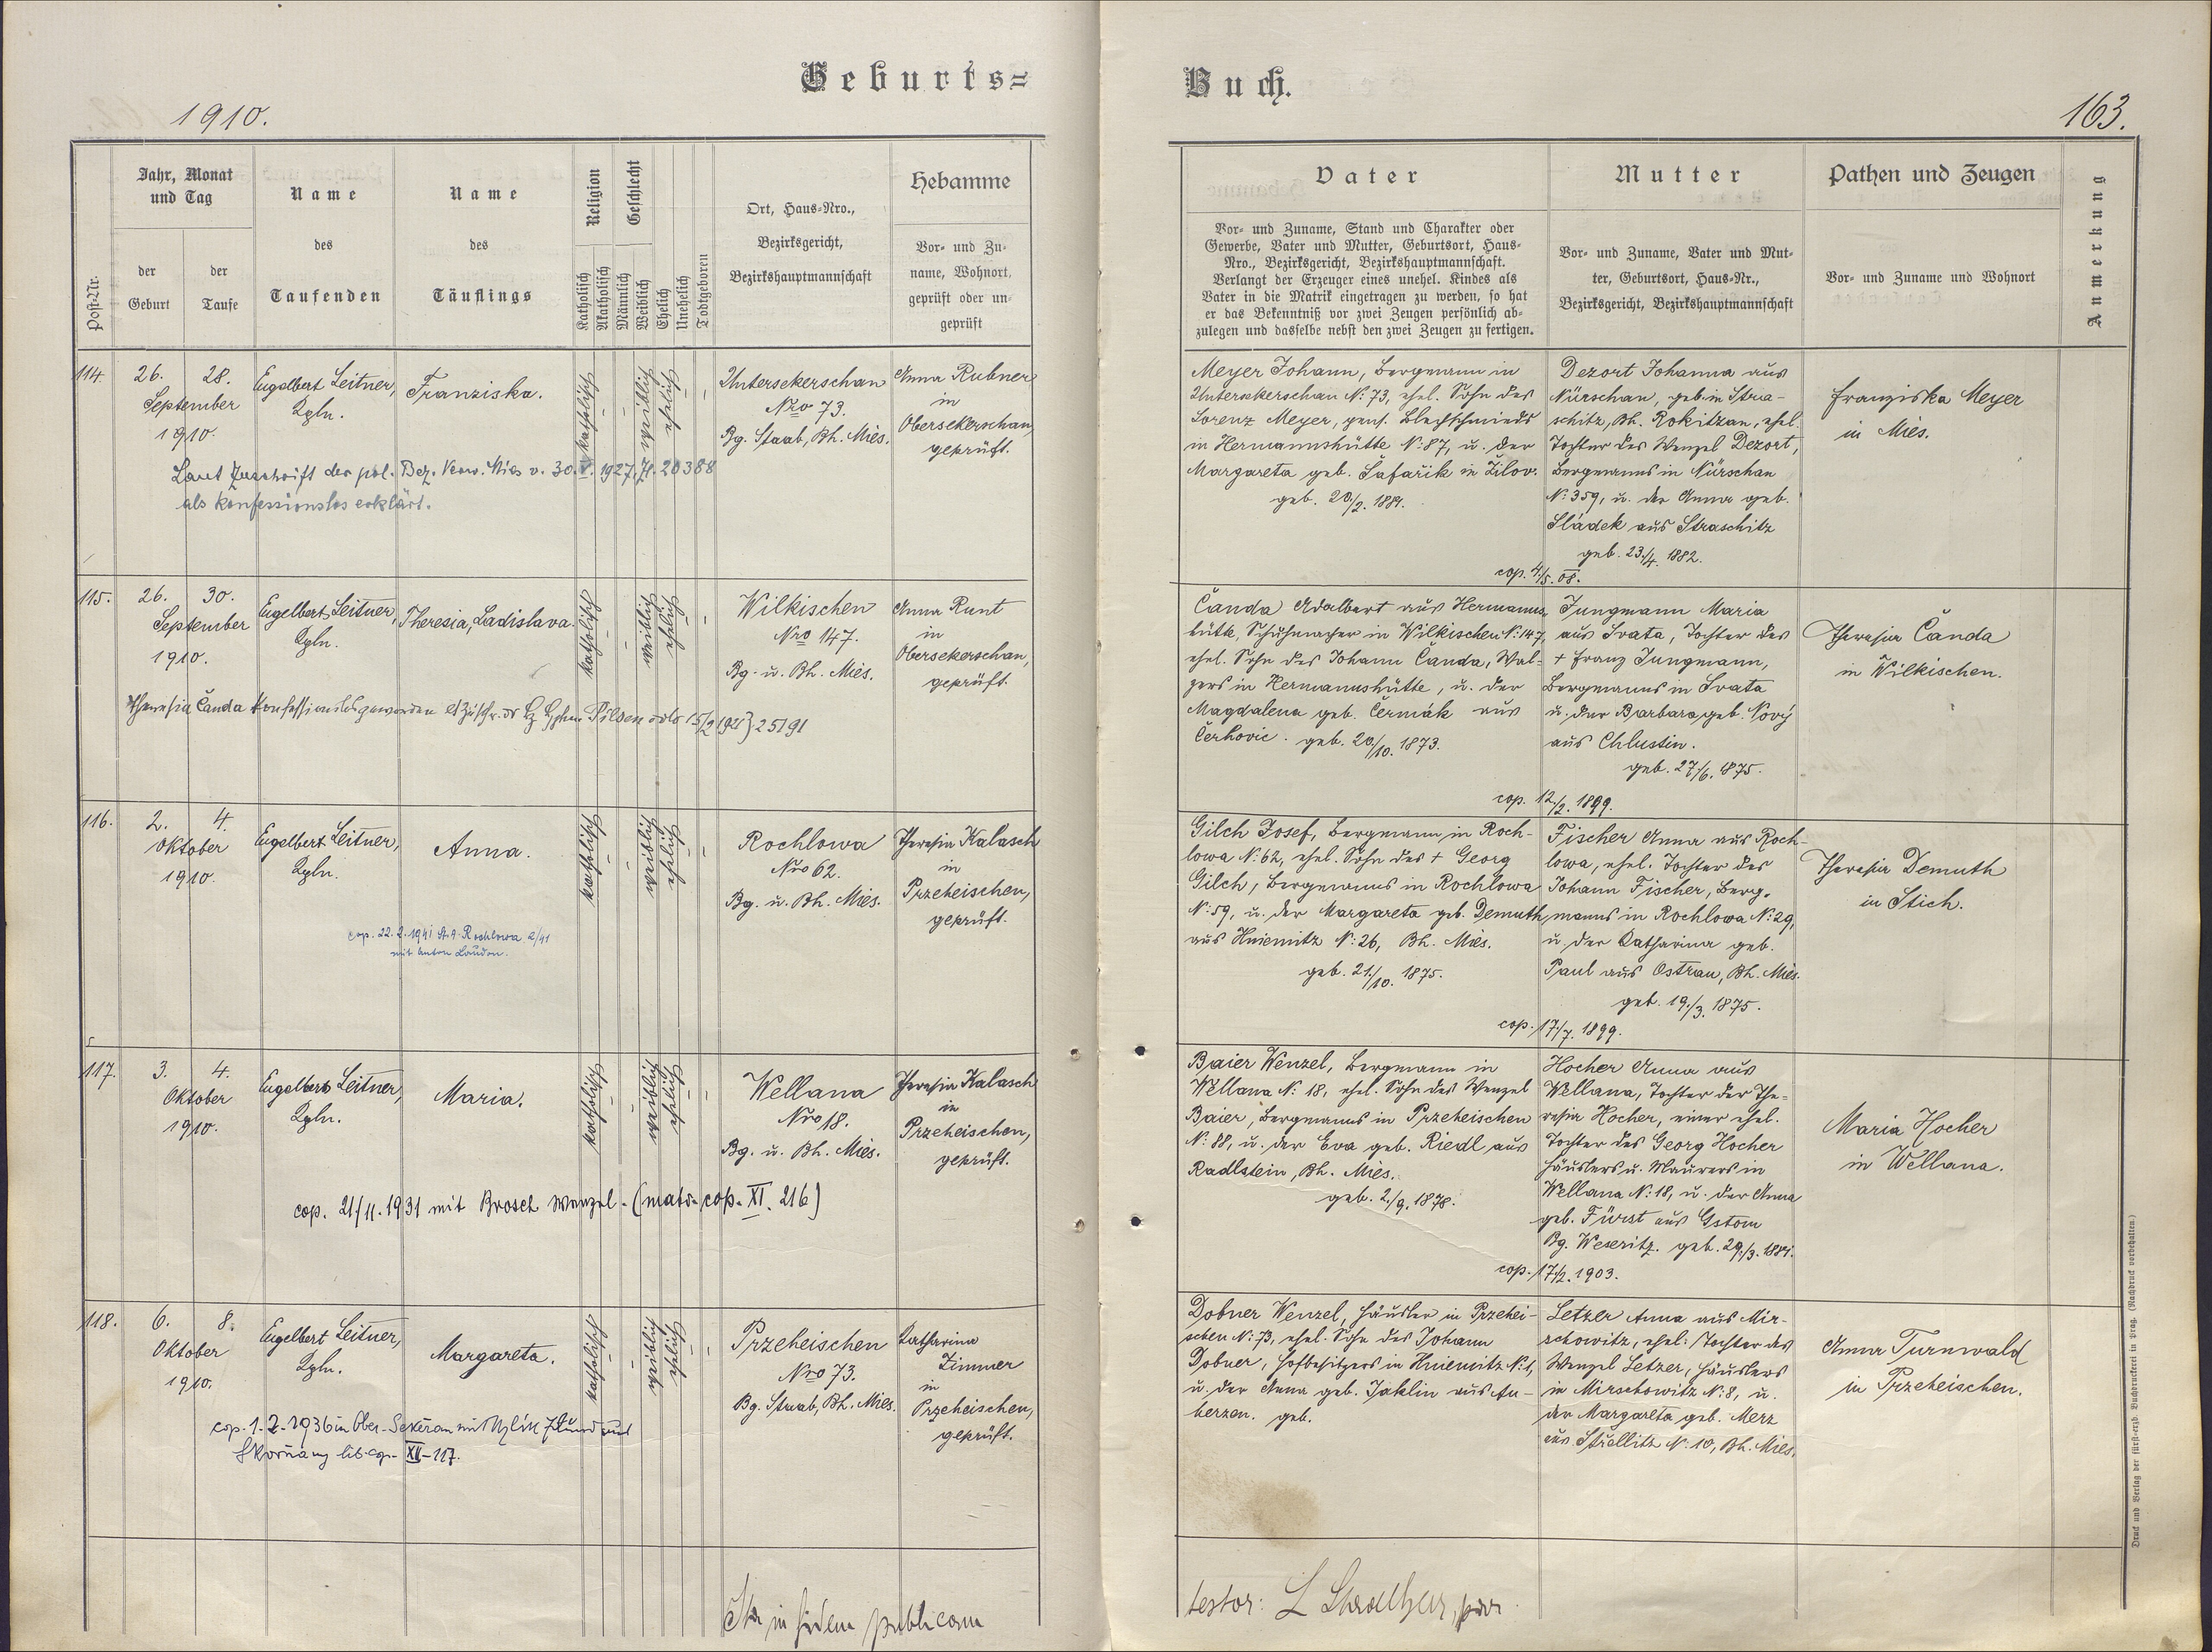 Geburts=
Buch.
1910.
163.
Post-Nr.
Jahr, Monat
und Tag
der
Geburt
der
Taufe
Name
des
Taufenden
Name
des
Täuflings
Religion
Katholisch
Akatholisch
Geschlecht
Männlich
Weiblich
Ehelich
Unehelich
Todtgeboren
Ort, Haus-Nro.,
Bezirksgericht,
Bezirkshauptmannschaft
Hebamme
Vor- und Zu-
name, Wohnort,
geprüft oder un-
geprüft
Vater
Vor- und Zuname, Stand und Charakter oder
Gewerbe, Vater und Mutter, Geburtsort, Haus-
Nro., Bezirksgericht, Bezirkshauptmannschaft.
Verlangt der Erzeuger eines unehel. Kindes als
Vater in die Matrik eingetragen zu werden, so hat
er das Bekenntniß vor zwei Zeugen persönlich ab-
zulegen und dasselbe nebst den zwei Zeugen zu fertigen.
Mutter
Vor- und Zuname, Vater und Mut-
ter, Geburtsort, Haus-Nr.,
Bezirksgericht, Bezirkshauptmannschaft
Pathen und Zeugen
Vor- und Zuname und Wohnort
Anmerkung
114.
26.
28.
September
1910.
Engelbert Leitner,
Kpln.
Franziska.
katholisch
-
-
weiblich
ehelich
-
-
Untersekerschan
Nro 73.
Bg. Staab, Bh. Mies.
Anna Rubner
in
Obersekerschan,
geprüft.
Laut Zuschrift der pol. Bez. Verw. Mies v. 30. V. 1927, Zl. 20388
als konfessionslos erklärt.
Meyer Johann, Bergmann in
Untersekerschan N: 73, ehel. Sohn des
Lorenz Meyer, gens. Blechschmieds
in Hermannshütte N: 87, u. der
Margareta geb. Šafařik in Žilov.
geb. 20/2. 1884.
Dezort Johanna aus
Nürschan, geb. in Stra-
schitz, Bh. Rokitzan, ehel.
Tochter des Wenzel Dezort,
Bergmanns in Nürschan
N: 359, u. der Anna geb.
Sládek aus Straschitz
geb. 23./4. 1882.
cop. 4./5. 08.
Franziska Meyer
in Mies.
115.
26.
30.
September
1910.
Engelbert Leitner,
Kpln.
Theresia, Ladislava.
katholisch
-
-
weiblich
ehelich
-
-
Wilkischen
Nro 147.
Bg. u. Bh. Mies.
Anna Runt
in
Obersekerschan,
geprüft.
Theresia Čanda konfessionslos geworden Pilsen 15/2 1921 25191
Čanda Adalbert aus Hermanns-
hütte, Schuhmacher in Wilkischen N: 147,
ehel. Sohn des Johann Čanda, Wal-
zers in Hermannshütte, u. der
Magdalena geb. Čermák aus
Čerhovic. geb. 20/10. 1873.
Jungmann Maria
aus Svata, Tochter des
+ Franz Jungmann,
Bergmanns in Svata
u. der Barbara geb. Nový
aus Chlustin.
geb. 27/6. 1875.
cop. 12/2. 1899.
Theresia Čanda
in Wilkischen.
116.
2.
4.
Oktober
1910.
Engelbert Leitner,
Kpln.
Anna.
katholisch
-
-
weiblich
ehelich
-
-
Rochlowa
Nro 62.
Bg. u. Bh. Mies.
Theresia Kalasch
in
Przeheischen,
geprüft.
cop. 22.2.1941 St.A. Rochlowa 2/41
mit Anton Laudon.
Gilch Josef, Bergmann in Roch-
lowa N: 62, ehel. Sohn des + Georg
Gilch, Bergmanns in Rochlowa
N: 59, u. der Margareta geb. Demuth
aus Hniemitz N: 26, Bh. Mies.
geb. 21./10. 1875.
Fischer Anna aus Roch-
lowa, ehel. Tochter des
Johann Fischer, Berg-
manns in Rochlowa N: 29,
u. der Katharina geb.
Paul aus Ostrau, Bh. Mies.
geb. 19./3. 1875.
cop. 17/7. 1899.
Theresia Demuth
in Stich.
117.
3.
4.
Oktober
1910.
Engelbert Leitner,
Kpln.
Maria.
katholisch
-
-
weiblich
ehelich
-
-
Wellana
Nro 18.
Bg. u. Bh. Mies.
Theresia Kalasch
in
Przeheischen,
geprüft.
cop. 21/11. 1931 mit Brosch Wenzel. (matr. cop. XI. 216)
Baier Wenzel, Bergmann in
Wellana N: 18, ehel. Sohn des Wenzel
Baier, Bergmanns in Przeheischen
N: 88, u. der Eva geb. Riedl aus
Radlstein, Bh. Mies.
geb. 2./9. 1878.
Hocher Anna aus
Wellana, Tochter der The-
resia Hocher, einer ehel.
Tochter des Georg Hocher
Häuslers u. Maurers in
Wellana N: 18, u. der Anna
geb. Fürst aus Gstom
Bg. Weseritz. geb. 29./3. 1884.
cop. 17/2. 1903.
Maria Hocher
in Wellana.
118.
6.
8.
Oktober
1910.
Engelbert Leitner,
Kpln.
Margareta.
katholisch
-
-
weiblich
ehelich
-
-
Przeheischen
Nro 73.
Bg. Staab, Bh. Mies.
Katharina
Zimmer
in
Przeheischen,
geprüft.
cop. 1.2.1936 in Ober-Sekeřan mit aus
lib. cop. XII-117.
Dobner Wenzel, Häusler in Przehei-
schen N: 73, ehel. Sohn des Johann
Dobner, Hofbesitzers in Hniemitz N: 1,
u. der Anna geb. Jaklin aus Au-
herzen. geb.
Letzer Anna aus Mir-
schowitz, ehel. Tochter des
Wenzel Letzer, Häuslers
in Mirschowitz N: 8, u.
der Margareta geb. Merz
aus Střellitz N: 10, Bh. Mies.
Anna Turnwald
in Przeheischen.
Ita in fidem publicam
testor:
Druck und Verlag der fürst-erzb. Buchdruckerei in Prag. (Nachdruck vorbehalten.)